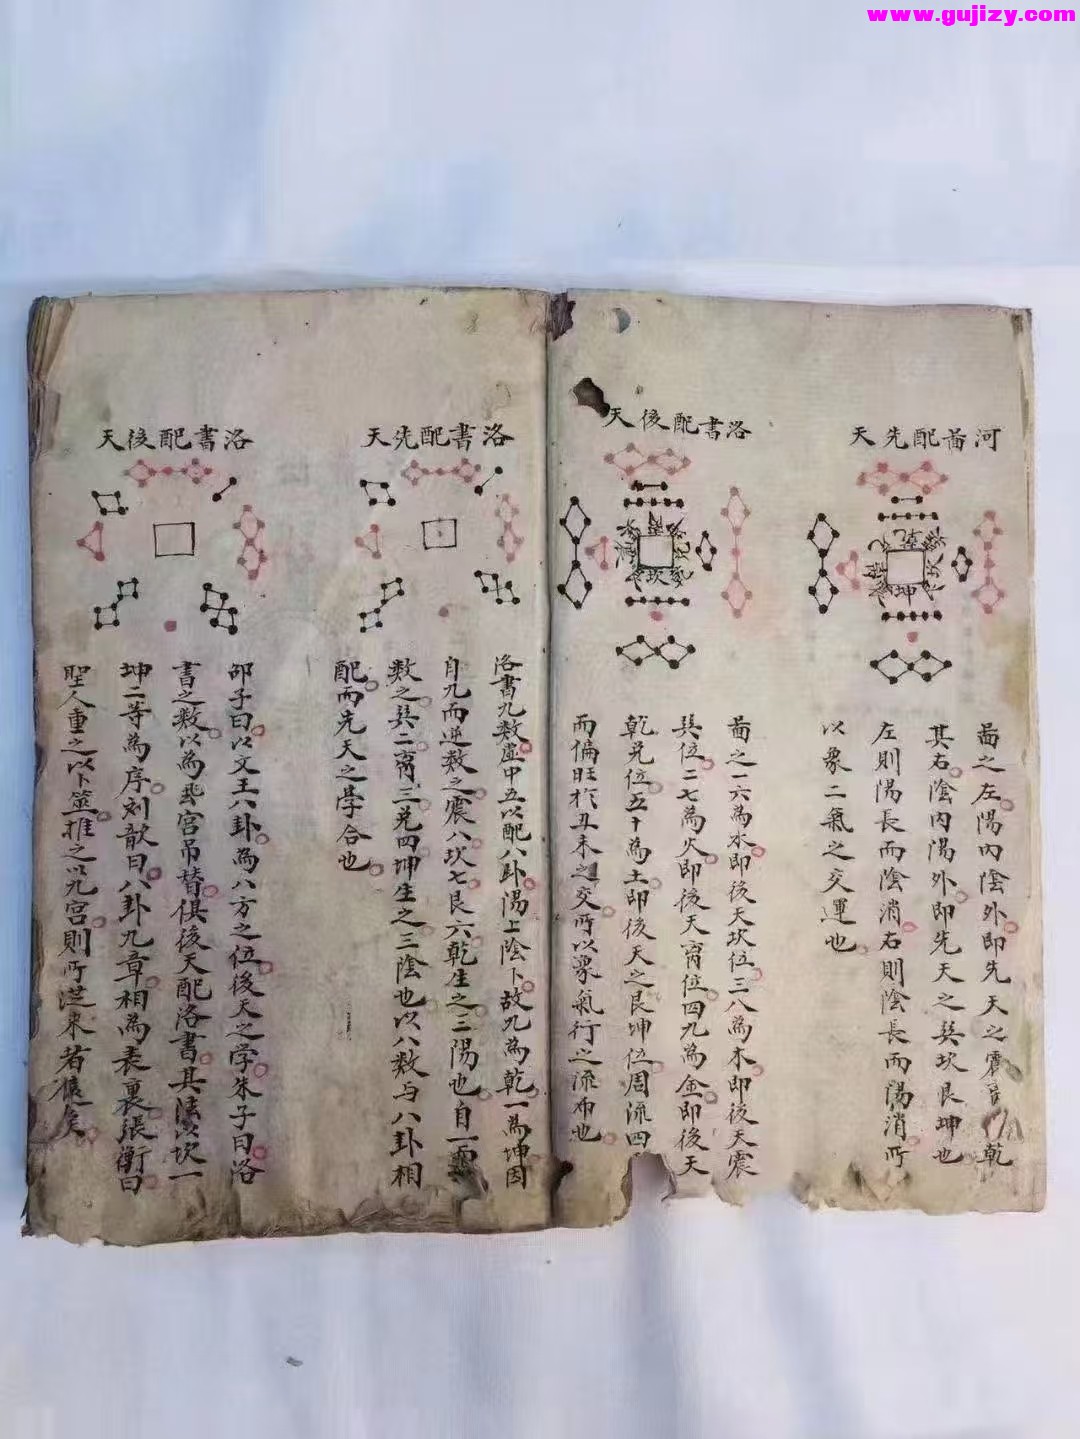 www.gujizy.com
河啚配先天
啚之左陽内陰外即先天之震 乾
其右陰内陽外即先天之巽坎艮坤也
左則陽長而陰消右則陰長而陽消所
以象二氣之交運也
洛書配後天
啚之一六為水即後天坎位三八為木即後天震
巽位二七為火即後天离位四九為金即後天
乾兌位五十為土即後天之艮坤位周流四
而偏旺於丑未之交所以象氣行之流布也
洛書配先天
洛書九数虛中五以配八卦陽上陰下故九為乾一為坤因
自九而逆数之震八坎七艮六乾生之三陽也自一而
数之巽二离三兌四坤生之三陰也以八数与八卦相
配而先天之學合也
洛書配後天
邵子曰以文王八卦為八方之位後天之学朱子曰洛
書之数以為飛宮吊替俱後天配洛書其法以坎一
坤二等為序刘歆曰八卦九章相為表裏張衡曰
聖人重之以卜筮推之以九宮則所從来者